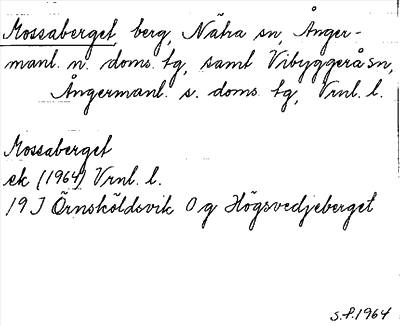 Mossaberget, berg, Näha sn, Ånger-
manl. n. doms. tg, samt Vibyggerå sn,
Ångermanl. s. doms. tg, Vrnl. l.
Mossaberget
ek (1964) Vrnl. l.
19 J Örnsköldsvik O g Högsvedjeberget
S.F. 1964